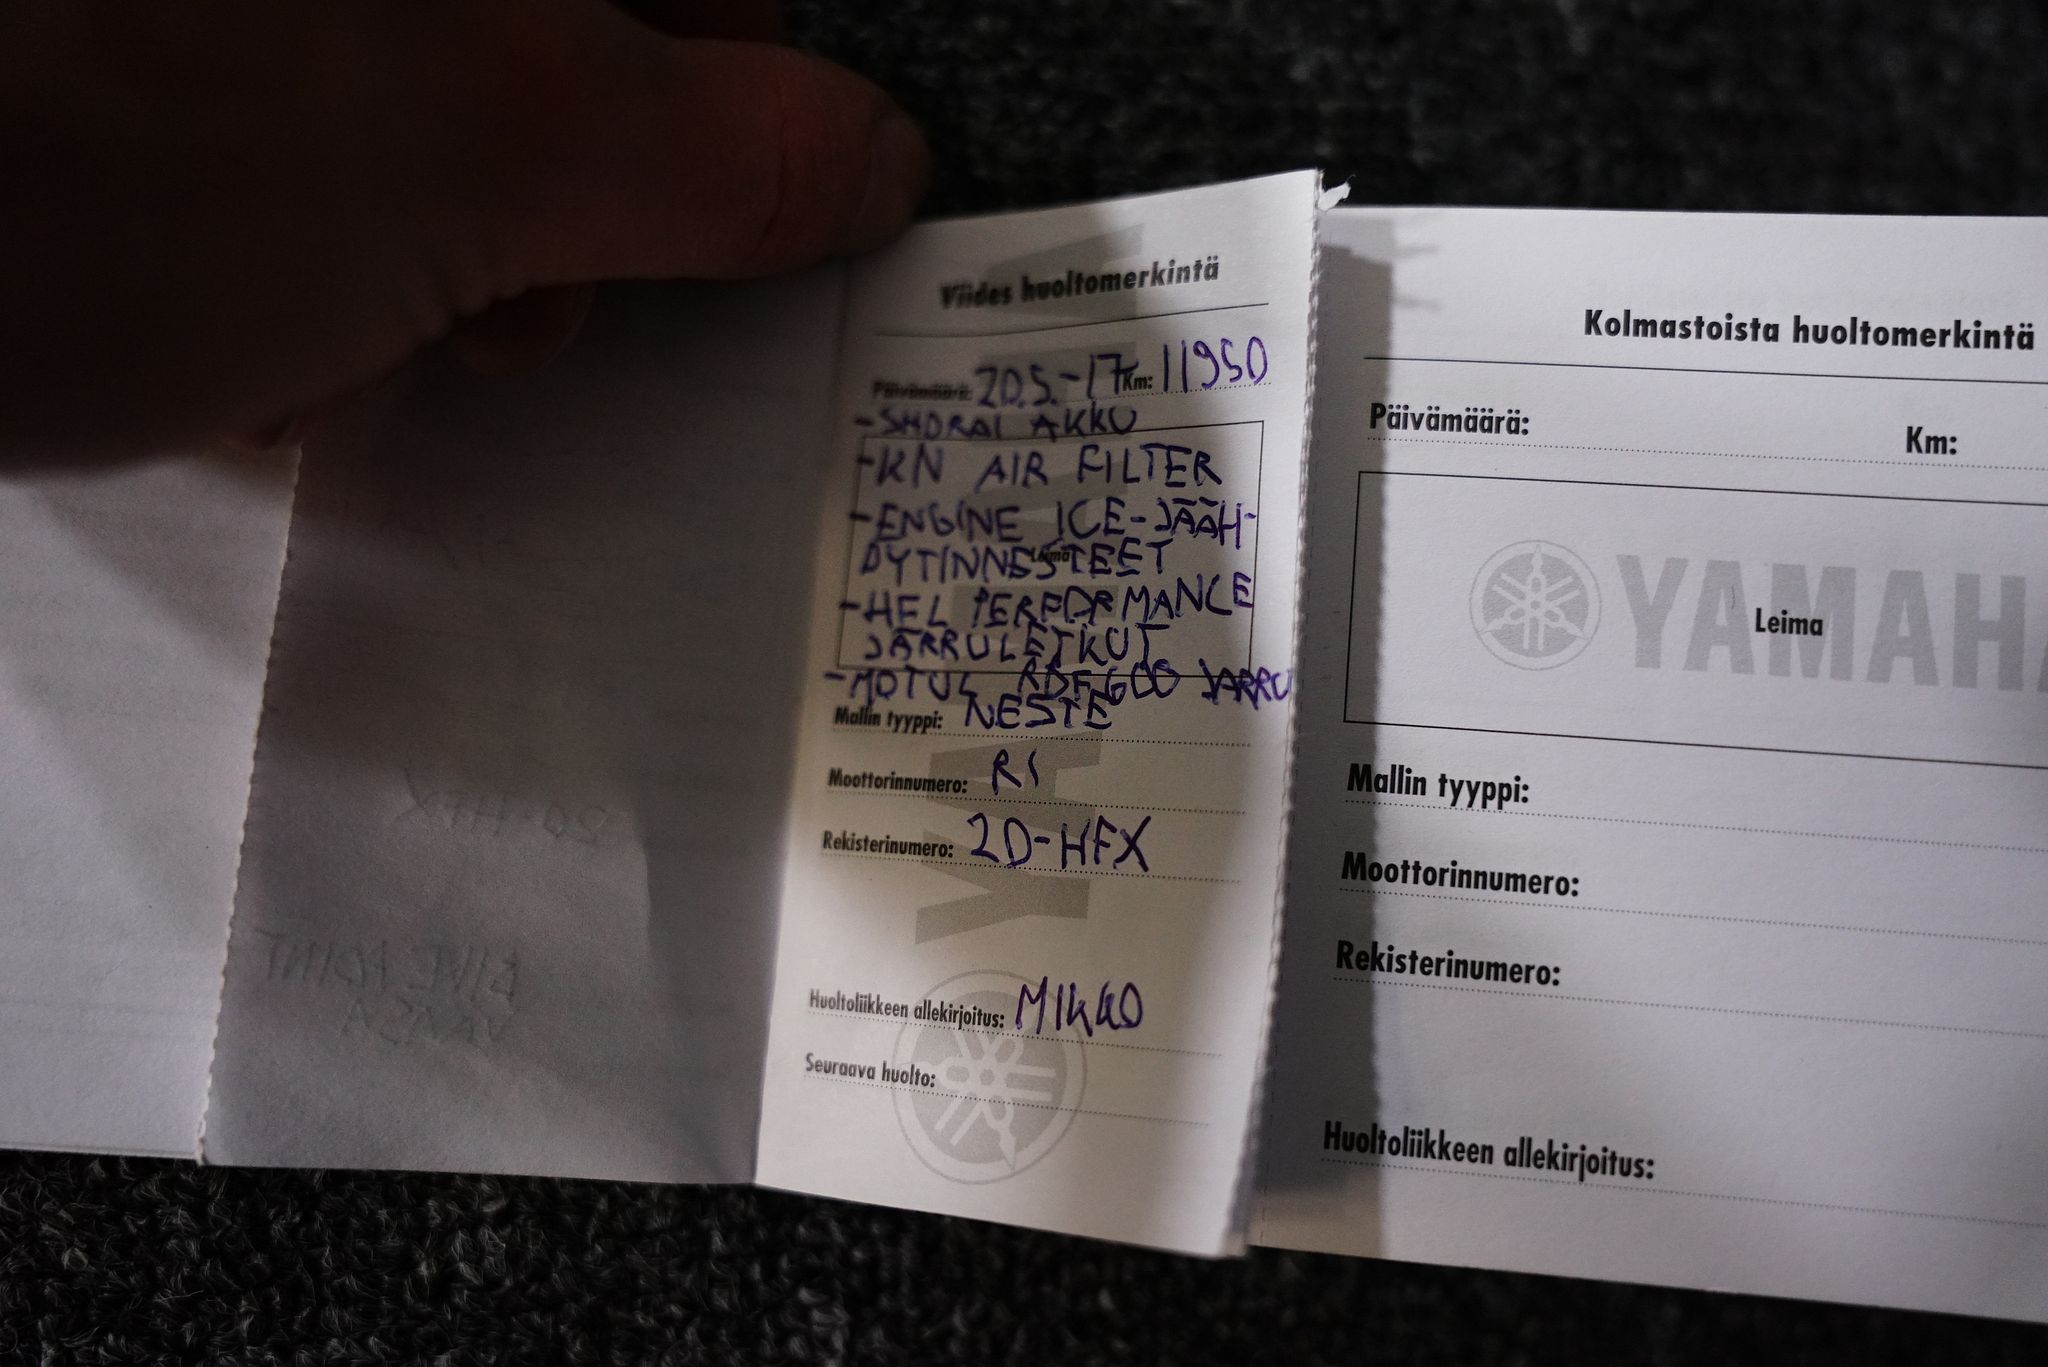 Viides huoltomerkintä
Päivämäärä: 20.5.-17 Km: 11950
-SHORAI AKKU
-KN AIR FILTER
-ENGINE ICE-JÄÄH-
DYTINNESTEET
Leima
-HEL PERFORMANCE
JARRULETKUT
-MOTUL RBF600 JARRU
Mallin tyyppi: NESTE
Moottorinnumero: R1
Rekisterinumero: 20-HFX
Huoltoliikkeen allekirjoitus: MIKKO
Seuraava huolto:
YAMAHA
Kolmastoista huoltomerkintä
Päivämäärä:
Km:
YAMAHA
Leima
Mallin tyyppi:
Moottorinnumero:
Rekisterinumero:
Huoltoliikkeen allekirjoitus: